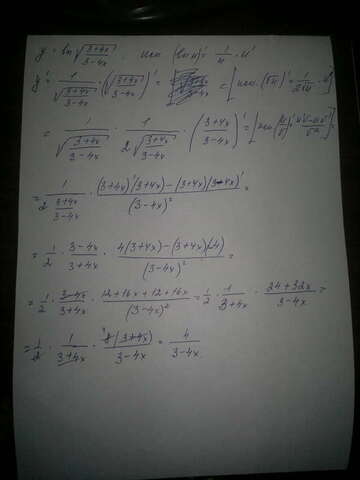 y = ln √((3+4x)/(3-4x)), исп. (ln u)' = 1/u · u'
y' = 1/√((3+4x)/(3-4x)) · (√((3+4x)/(3-4x)))' = = [исп. (√u)' = 1/(2√u) · u'] =
= 1/√((3+4x)/(3-4x)) · 1/(2√((3+4x)/(3-4x))) · ((3+4x)/(3-4x))' = [исп (u/v)' = (u'v-uv')/v²]
= 1/(2 (3+4x)/(3-4x)) · ((3+4x)'(3+4x) - (3+4x)(3-4x)')/(3-4x)² =
= 1/2 · (3-4x)/(3+4x) · (4(3+4x) - (3+4x)(-4))/(3-4x)² =
= 1/2 · (3-4x)/(3+4x) · (12+16x+12+16x)/(3-4x)² = 1/2 · 1/(3+4x) · (24+32x)/(3-4x) =
= 1/2 · 1/(3+4x) · 8(3+4x)/(3-4x) = 4/(3-4x)